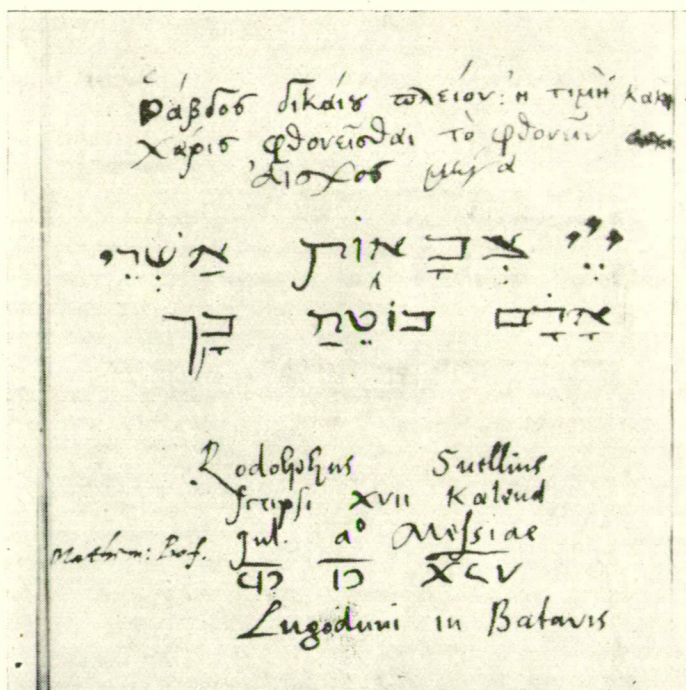 Ῥάβδος δικαίου πλείον: ἡ τιμὴ καὶ
Χάρις φθονεῖσθαι τὸ φθονεῖν
αἶσχος μέγα
יְיָ צְבָאוֹת אַשְׁרֵי
אָדָם בּוֹטֵחַ בָּךְ
Rodolphus Snellius
scripsi XVII Kalend
Jul. a° Messiae
Mathem: Prof.
CIƆ IƆ XCV
Lugoduni in Batavis